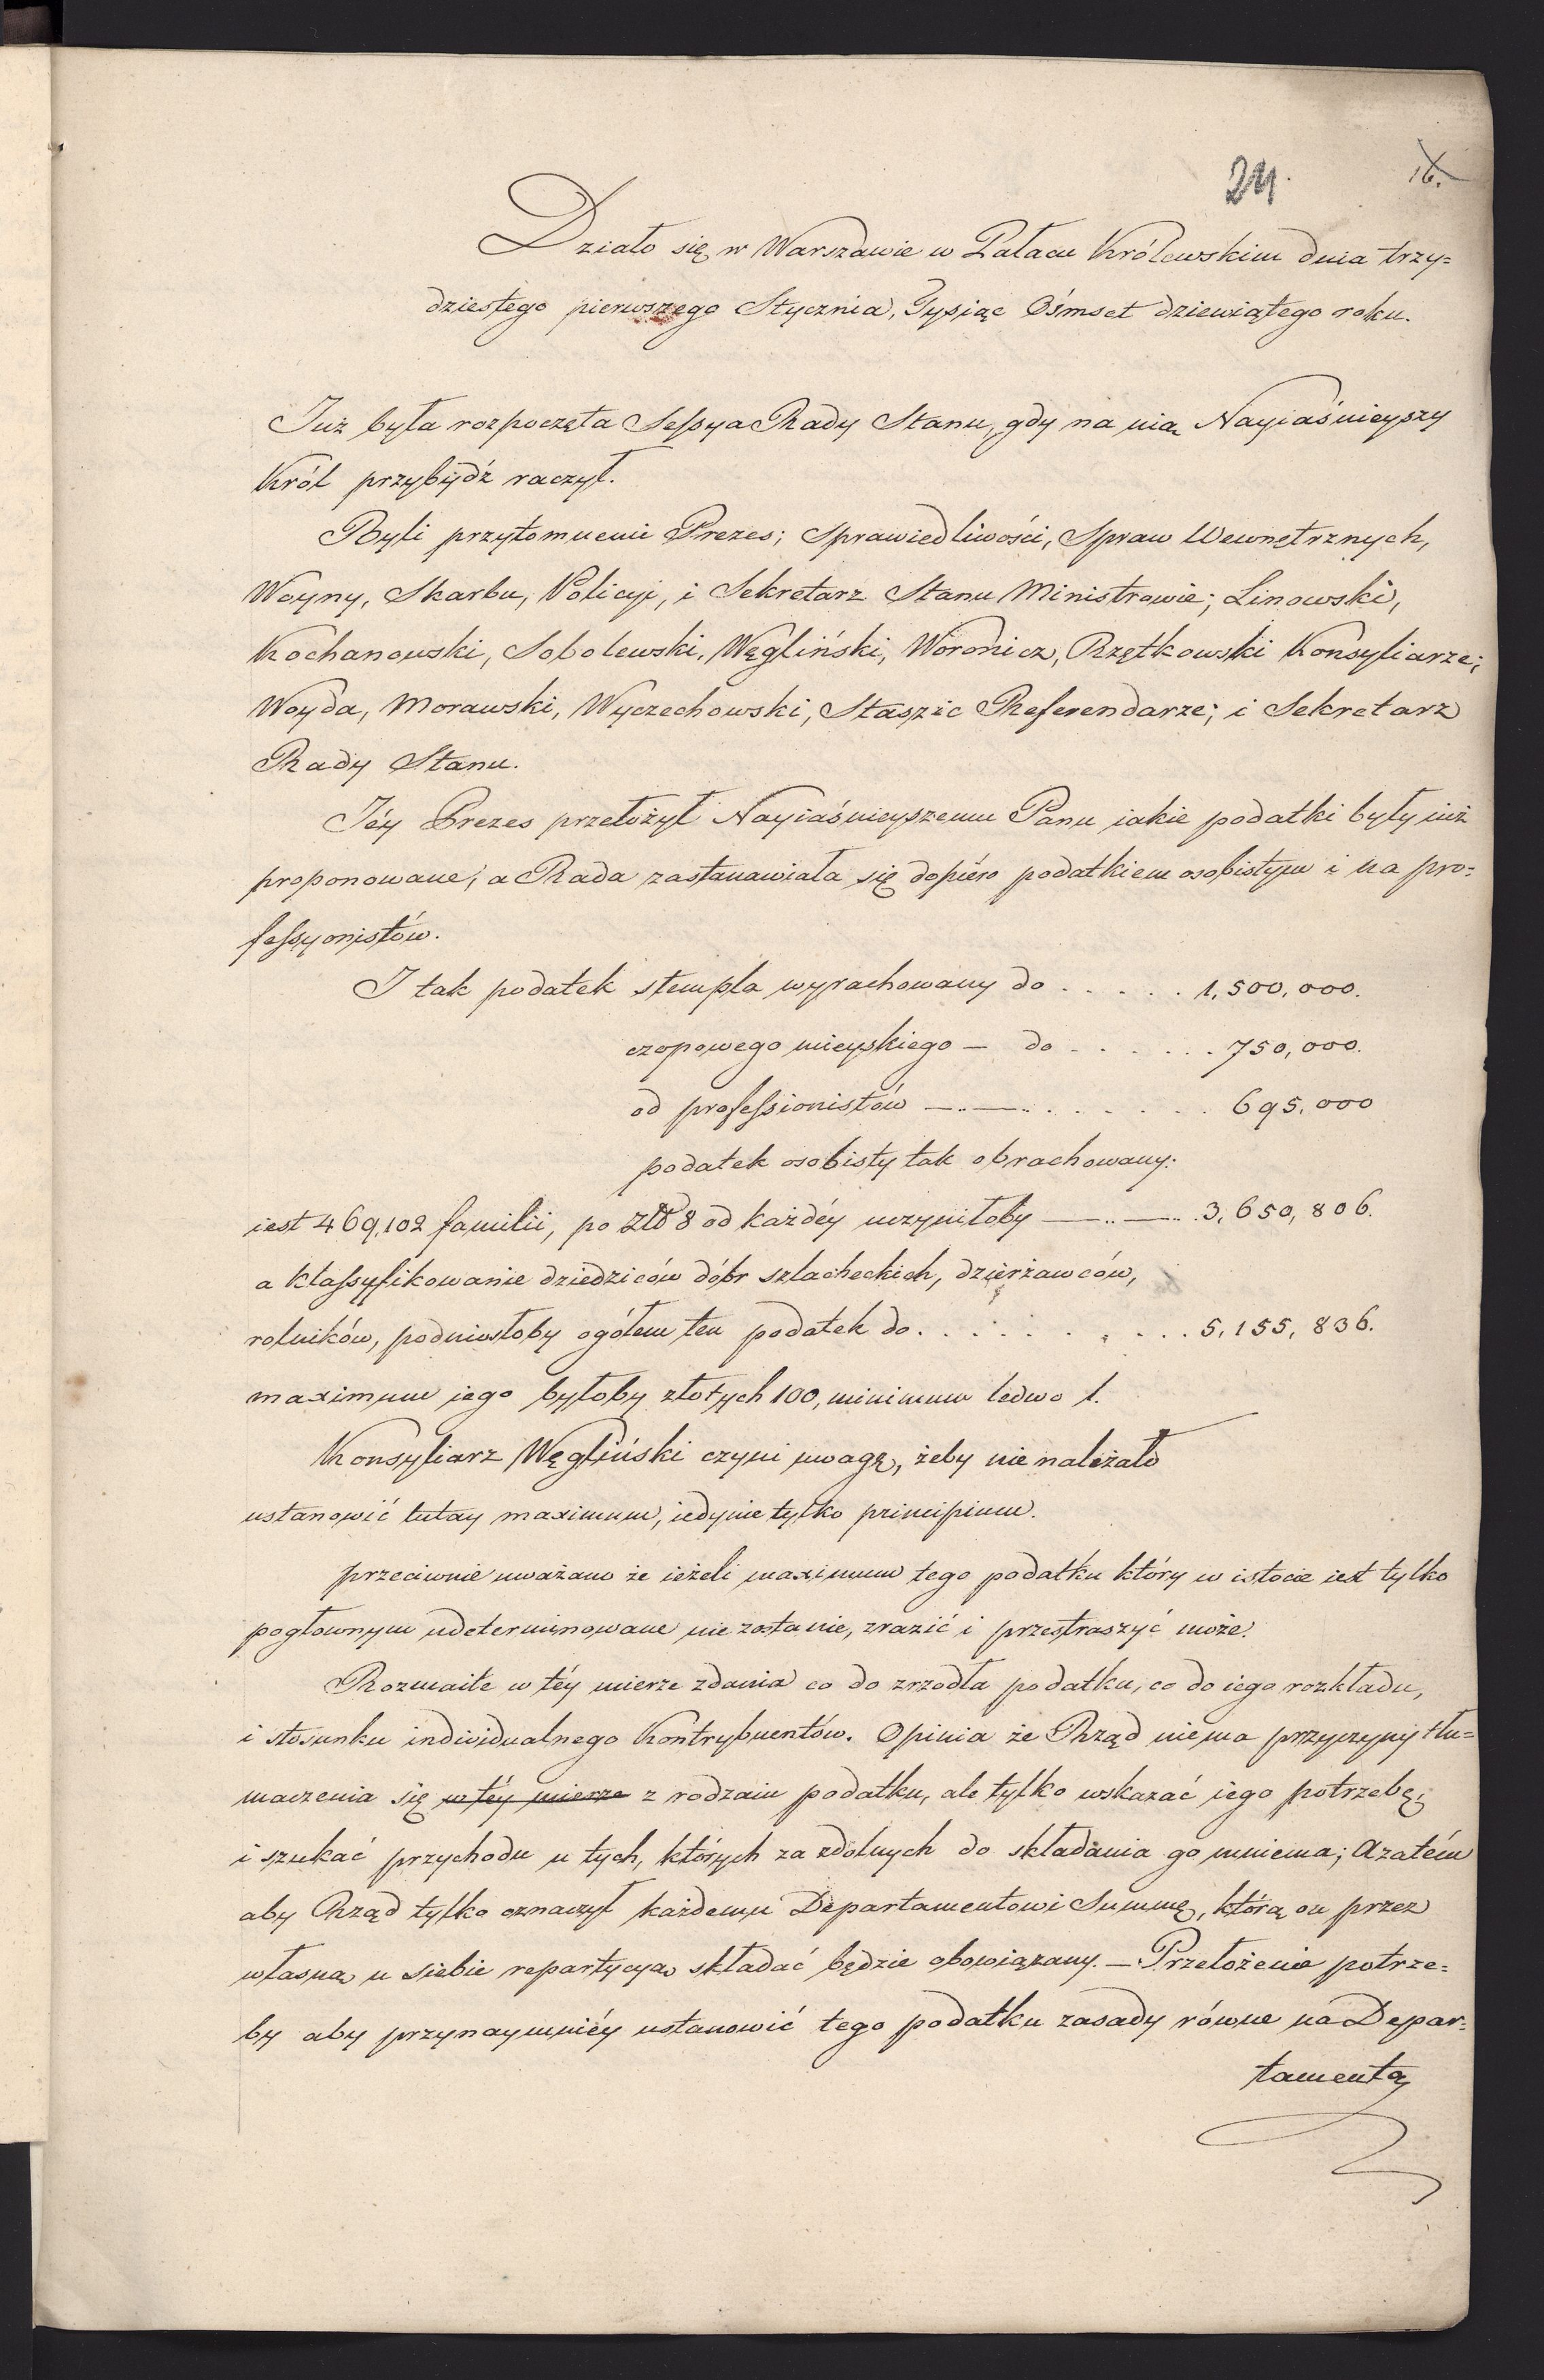 24.
16.
Działo się w Warszawie w Pałacu Królewskim dnia trzy=
dziestego pierwszego Stycznia, Tysiąc Ośmset dziewiątego roku.
Już była rozpoczęta Sessya Rady Stanu, gdy na nią Nayiaśnieyszy
Król przybydź raczył.
Byli przytomnemi Prezes; Sprawiedliwości, Spraw Wewnętrznych,
Woyny, Skarbu, Policyi, i Sekretarz Stanu Ministrowie; Linowski,
Kochanowski, Sobolewski, Węgliński, Woronicz, Rzętkowski Konsyliarze;
Woyda, Morawski, Wyczechowski, Staszic Referendarze; i Sekretarz
Rady Stanu.
Jéy Prezes przełożył Nayiaśnieyszemu Panu iakie podatki były iuż
proponowane; a Rada zastanawiała się dopiéro podatkiem osobistym i na pro=
fessyonistów.
I tak podatek stempla wyrachowany do . . . . . 1,500,000.
czopowego mieyskiego — do . . . . . . 750,000.
od professionistów —..—. . . . . . . 695,000
podatek osobisty tak obrachowany:
iest 469,102 familii, po Złł 8 od każdéy uczyniłoby —..—.. 3,650,806.
a klassyfikowanie dziedziców dóbr szlacheckich, dzierżawców,
rolników, podniosłoby ogółem ten podatek do . . . . . . . . . . 5,155,836.
maximum iego byłoby złotych 100, minimum ledwo 1.
Konsyliarz Węgliński czyni uwagę, żeby nie należało
ustanowić tutay maximum, iedynie tylko principium.
przeciwnie uważano że ieżeli maximum tego podatku który w istocie iest tylko
pogłownym udeterminowane nie zostanie, zrazić i przestraszyć może.
Rozmaite w téy mierze zdania co do zrzodła podatku, co do iego rozkładu,
i stosunku individualnego Kontrybuentów. Opinia że Rząd niema przyczyny tłu=
maczenia się w téy mierze z rodzaiu podatku, ale tylko wskazać iego potrzebę,
i szukać przychodu u tych, których za zdolnych do składania go mniema; A zatém
aby Rząd tylko oznaczył każdemu Departamentowi Summę, którą on przez
własną u siebie repartycyą składać będzie obowiązany. — Przełożenie potrze=
by aby przynaymniéy ustanowić tego podatku zasady równe na Depar=
tamenta